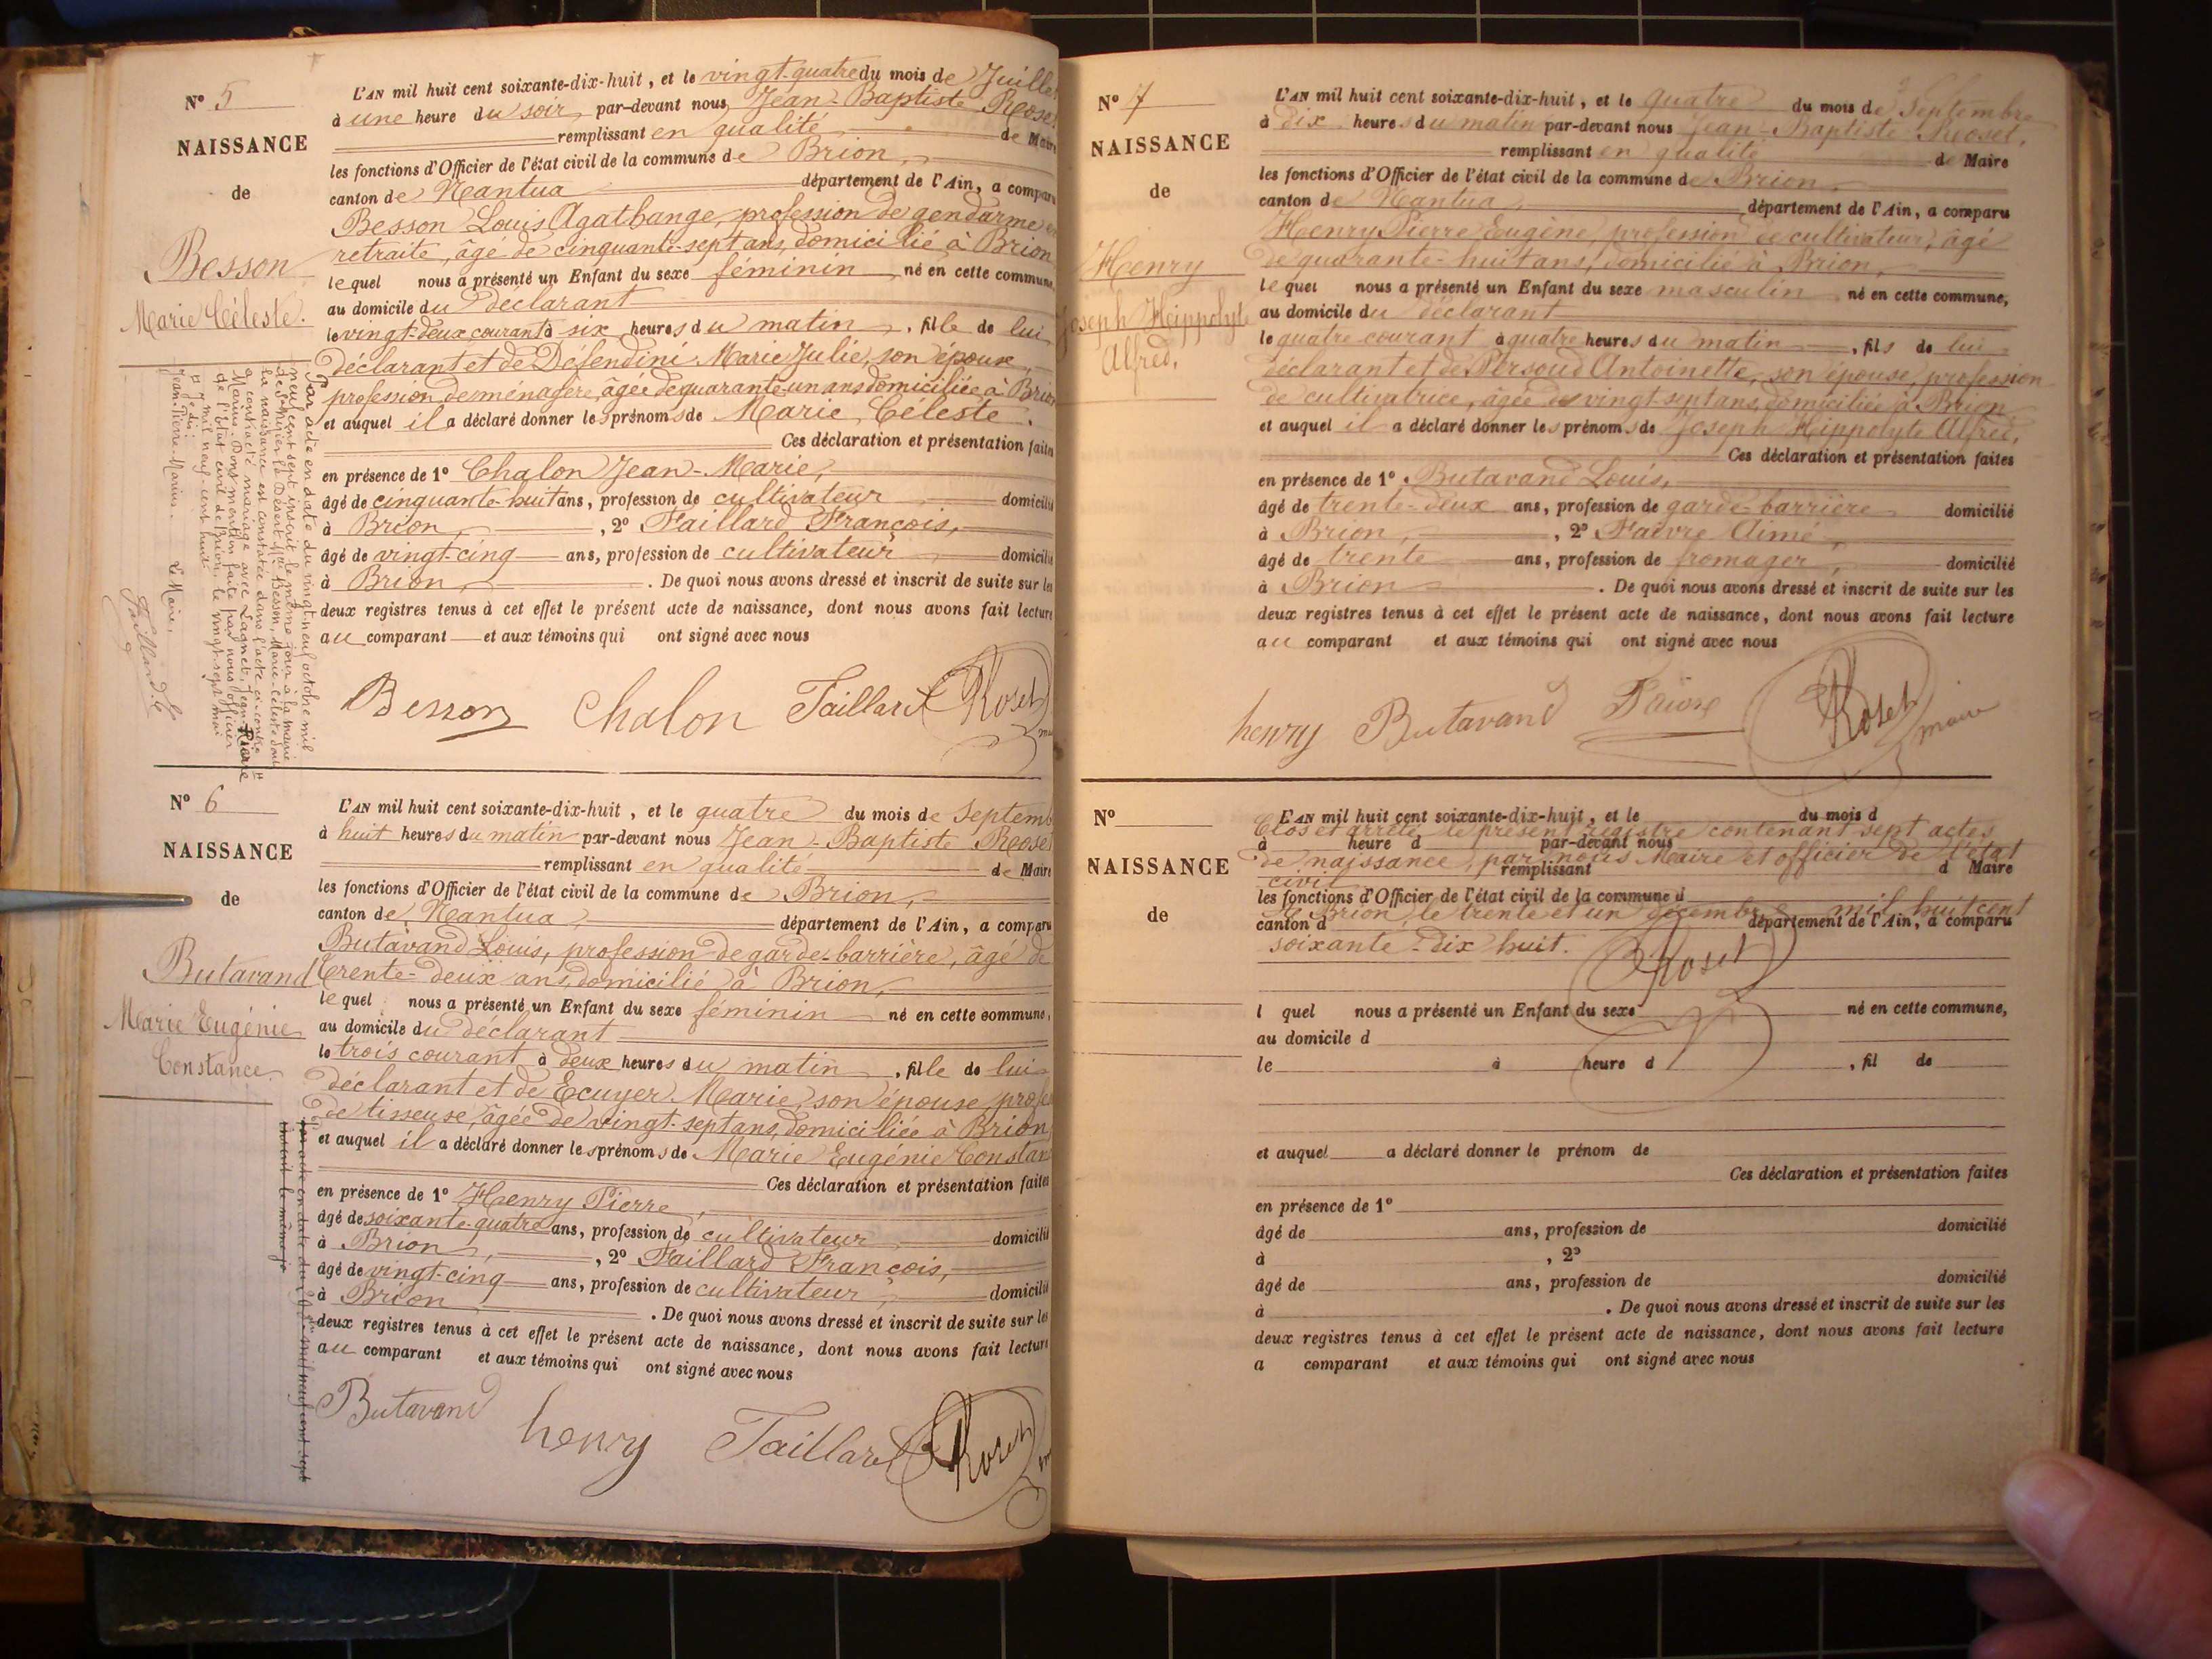 N° 5
NAISSANCE
de
Besson
Marie Céleste.
L'AN mil huit cent soixante-dix-huit, et le vingt-quatre du mois de Juillet
à une heure du soir par-devant nous Jean-Baptiste Roset
remplissant en qualité de Maire
les fonctions d'Officier de l'état civil de la commune de Brion,
canton de Nantua département de l'Ain, a comparu
Besson Louis Agathange, profession de gendarme en
retraite, âgé de cinquante-sept ans, domicilié à Brion
lequel nous a présenté un Enfant du sexe féminin né en cette commune,
au domicile du déclarant
le vingt-deux courant à six heures du matin, fille de lui
déclarant et de Défendini Marie Julie, son épouse,
profession de ménagère, âgée de quarante-un ans domiciliée à Brion
et auquel il a déclaré donner les prénoms de Marie Céleste.
Ces déclaration et présentation faites
en présence de 1° Chalon Jean-Marie,
âgé de cinquante-huit ans, profession de cultivateur domicilié
à Brion, , 2° Taillard François,
âgé de vingt-cinq ans, profession de cultivateur, domicilié
à Brion, . De quoi nous avons dressé et inscrit de suite sur les
deux registres tenus à cet effet le présent acte de naissance, dont nous avons fait lecture
au comparant et aux témoins qui ont signé avec nous
Besson Chalon Taillard Roset
Par acte en date du vingt-neuf octobre mil
neuf cent sept inscrit le même jour à la mairie
Besson, Marie-Céleste dont
la naissance est constatée dans l'acte ci-contre
a contracté mariage avec Lagnet, Jean-Pierre
Marius. Dont mention faite par nous officier
de l'état civil de Brion, le vingt-sept mai
mil neuf-cent-huit.
Jean-Pierre-Marius. Le Maire,
Taillard
N° 6
NAISSANCE
de
Butavand
Marie Eugénie
Constance.
L'AN mil huit cent soixante-dix-huit, et le quatre du mois de Septemb
à huit heures du matin par-devant nous Jean-Baptiste Roset
remplissant en qualité de Maire
les fonctions d'Officier de l'état civil de la commune de Brion,
canton de Nantua, département de l'Ain, a comparu
Butavand Louis, profession de garde-barrière, âgé de
trente-deux ans, domicilié à Brion,
lequel nous a présenté un Enfant du sexe féminin né en cette commune,
au domicile du déclarant
le trois courant à deux heures du matin, fille de lui
déclarant et de Ecuyer Marie, son épouse, profes
de tisseuse, âgée de vingt-sept ans, domiciliée à Brion
et auquel il a déclaré donner les prénoms de Marie Eugénie Constan
Ces déclaration et présentation faites
en présence de 1° Henry Pierre,
âgé de soixante-quatre ans, profession de cultivateur domicilié
à Brion, , 2° Taillard François,
âgé de vingt-cinq ans, profession de cultivateur, domicilié
à Brion . De quoi nous avons dressé et inscrit de suite sur les
deux registres tenus à cet effet le présent acte de naissance, dont nous avons fait lecture
au comparant et aux témoins qui ont signé avec nous
Butavand henry Taillard Roset
Par acte en date du mil neuf cent sept
inscrit le même jo
N° 7
NAISSANCE
de
Henry
Joseph Hippolyte
Alfred.
L'AN mil huit cent soixante-dix-huit, et le quatre du mois de Septembre
à dix heures du matin par-devant nous Jean-Baptiste Roset,
remplissant en qualité de Maire
les fonctions d'Officier de l'état civil de la commune de Brion,
canton de Nantua, département de l'Ain, a comparu
Henry Pierre Eugène, profession de cultivateur, âgé
de quarante-huit ans, domicilié à Brion,
lequel nous a présenté un Enfant du sexe masculin né en cette commune,
au domicile du déclarant
le quatre courant à quatre heures du matin, fils de lui
déclarant et de Persoud Antoinette, son épouse, profession
de cultivatrice, âgée de vingt-sept ans, domiciliée à Brion.
et auquel il a déclaré donner les prénoms de Joseph Hippolyte Alfred,
Ces déclaration et présentation faites
en présence de 1° Butavand Louis,
âgé de trente-deux ans, profession de garde-barrière domicilié
à Brion, , 2° Faivre Aimé,
âgé de trente ans, profession de fromager, domicilié
à Brion . De quoi nous avons dressé et inscrit de suite sur les
deux registres tenus à cet effet le présent acte de naissance, dont nous avons fait lecture
au comparant et aux témoins qui ont signé avec nous
henry Butavand Faivre Roset maire
N°
NAISSANCE
de
L'AN mil huit cent soixante-dix-huit, et le du mois d
Clos et arrêté le présent registre contenant sept actes
à heure d par-devant nous
de naissance, par nous Maire et officier de l'état
remplissant d Maire
civil
les fonctions d'Officier de l'état civil de la commune d
de Brion, le trente et un décembre mil huit cent
canton d département de l'Ain, a comparu
soixante-dix huit. Roset
l quel nous a présenté un Enfant du sexe né en cette commune,
au domicile d
le à heure d , fil de
et auquel a déclaré donner le prénom de
Ces déclaration et présentation faites
en présence de 1°
âgé de ans, profession de domicilié
à , 2°
âgé de ans, profession de domicilié
à . De quoi nous avons dressé et inscrit de suite sur les
deux registres tenus à cet effet le présent acte de naissance, dont nous avons fait lecture
a comparant et aux témoins qui ont signé avec nous